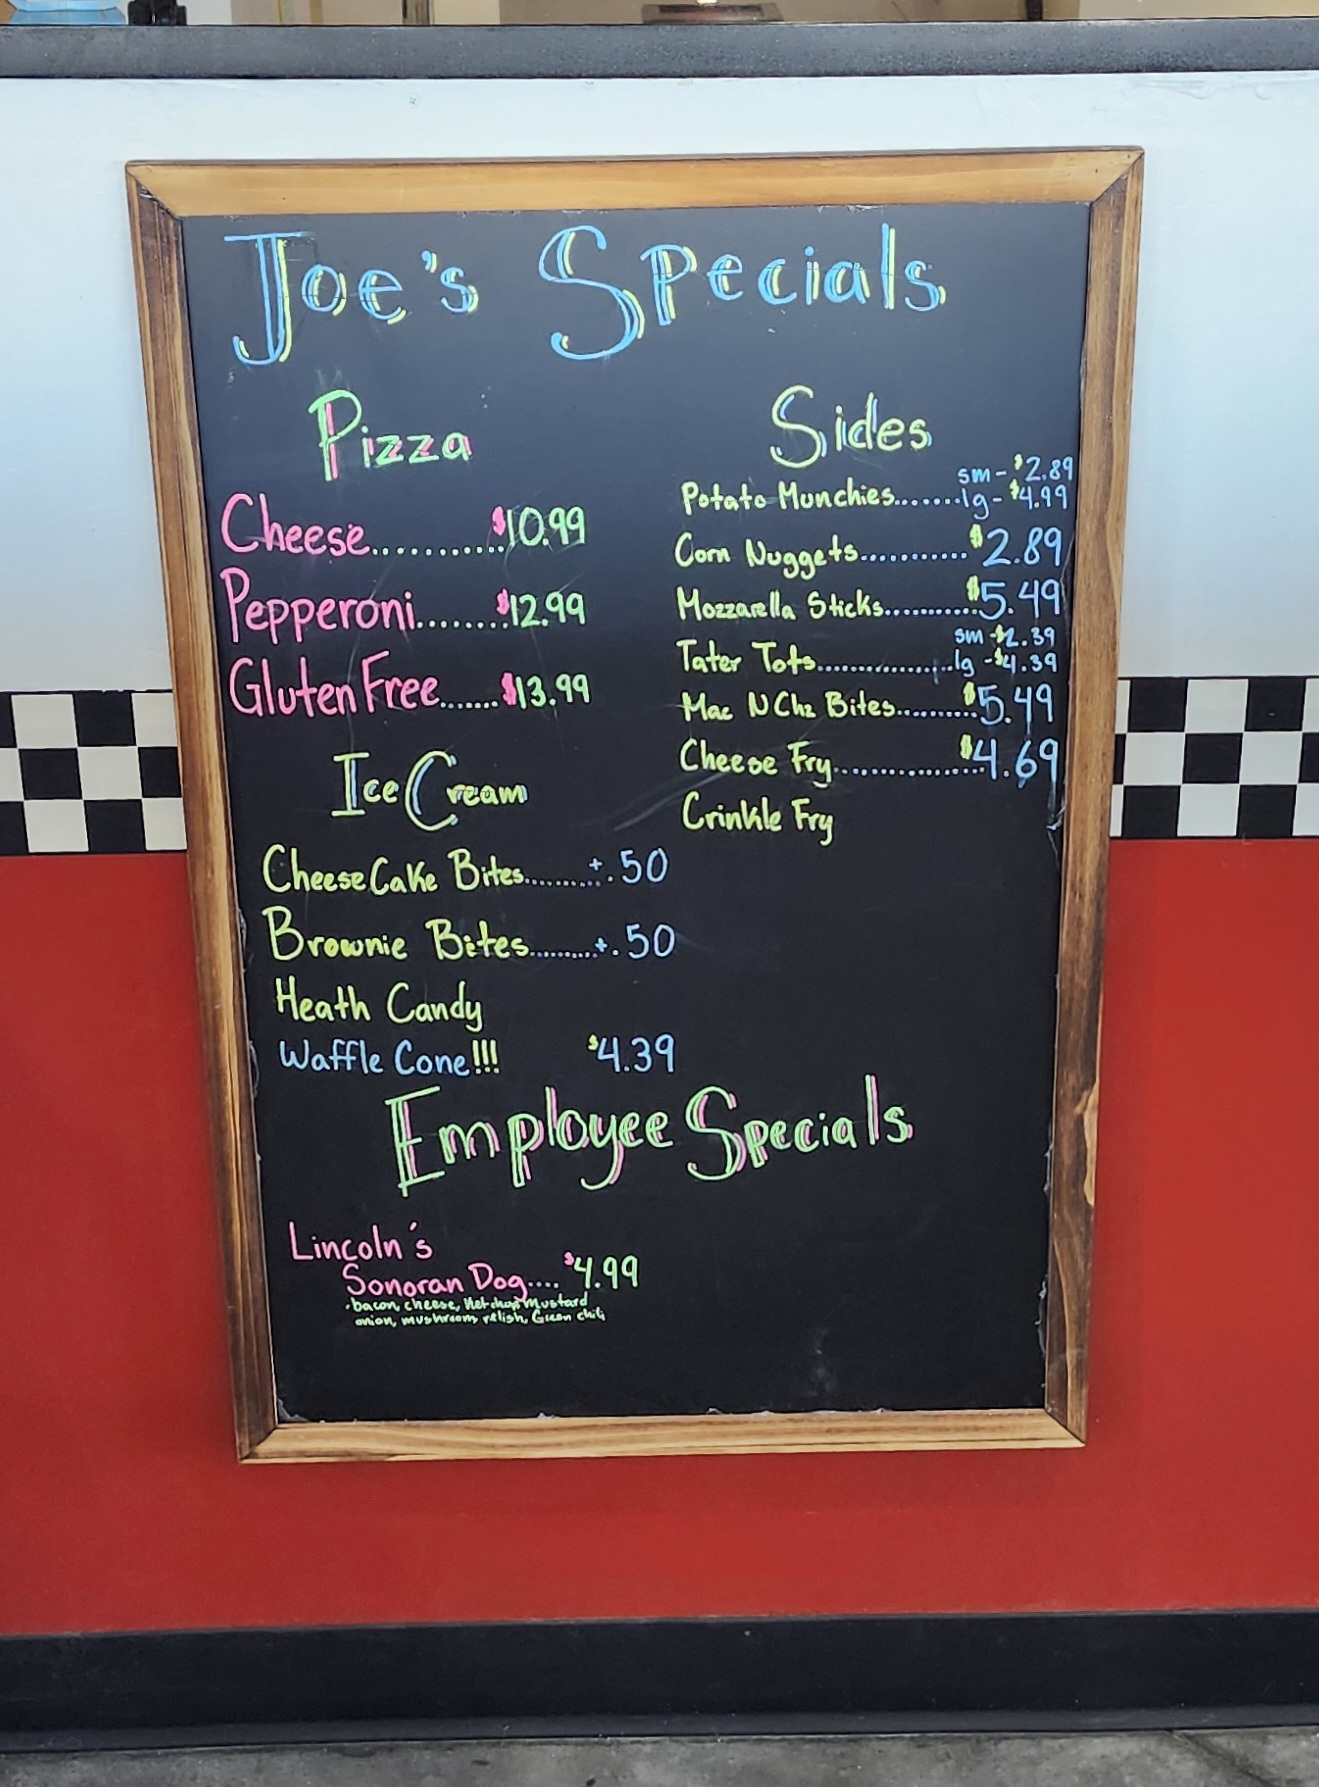 Joe's Specials
Pizza
Cheese...........$10.99
Pepperoni........$12.99
Gluten Free.......$13.99
Ice Cream
CheeseCake Bites.........+.50
Brownie Bites.........+.50
Heath Candy
Waffle Cone!!! $4.39
Sides
sm-$2.89
Potato Munchies.......lg-$4.99
Corn Nuggets...........$2.89
Mozzarella Sticks..........$5.49
sm-$2.39
Tater Tots................lg-$4.39
Mac N Chz Bites..........$5.49
Cheese Fry................$4.69
Crinkle Fry
Employee Specials
Lincoln's
Sonoran Dog....$4.99
·bacon, cheese, Ketchup, Mustard
onion, mushroom, relish, Green chili